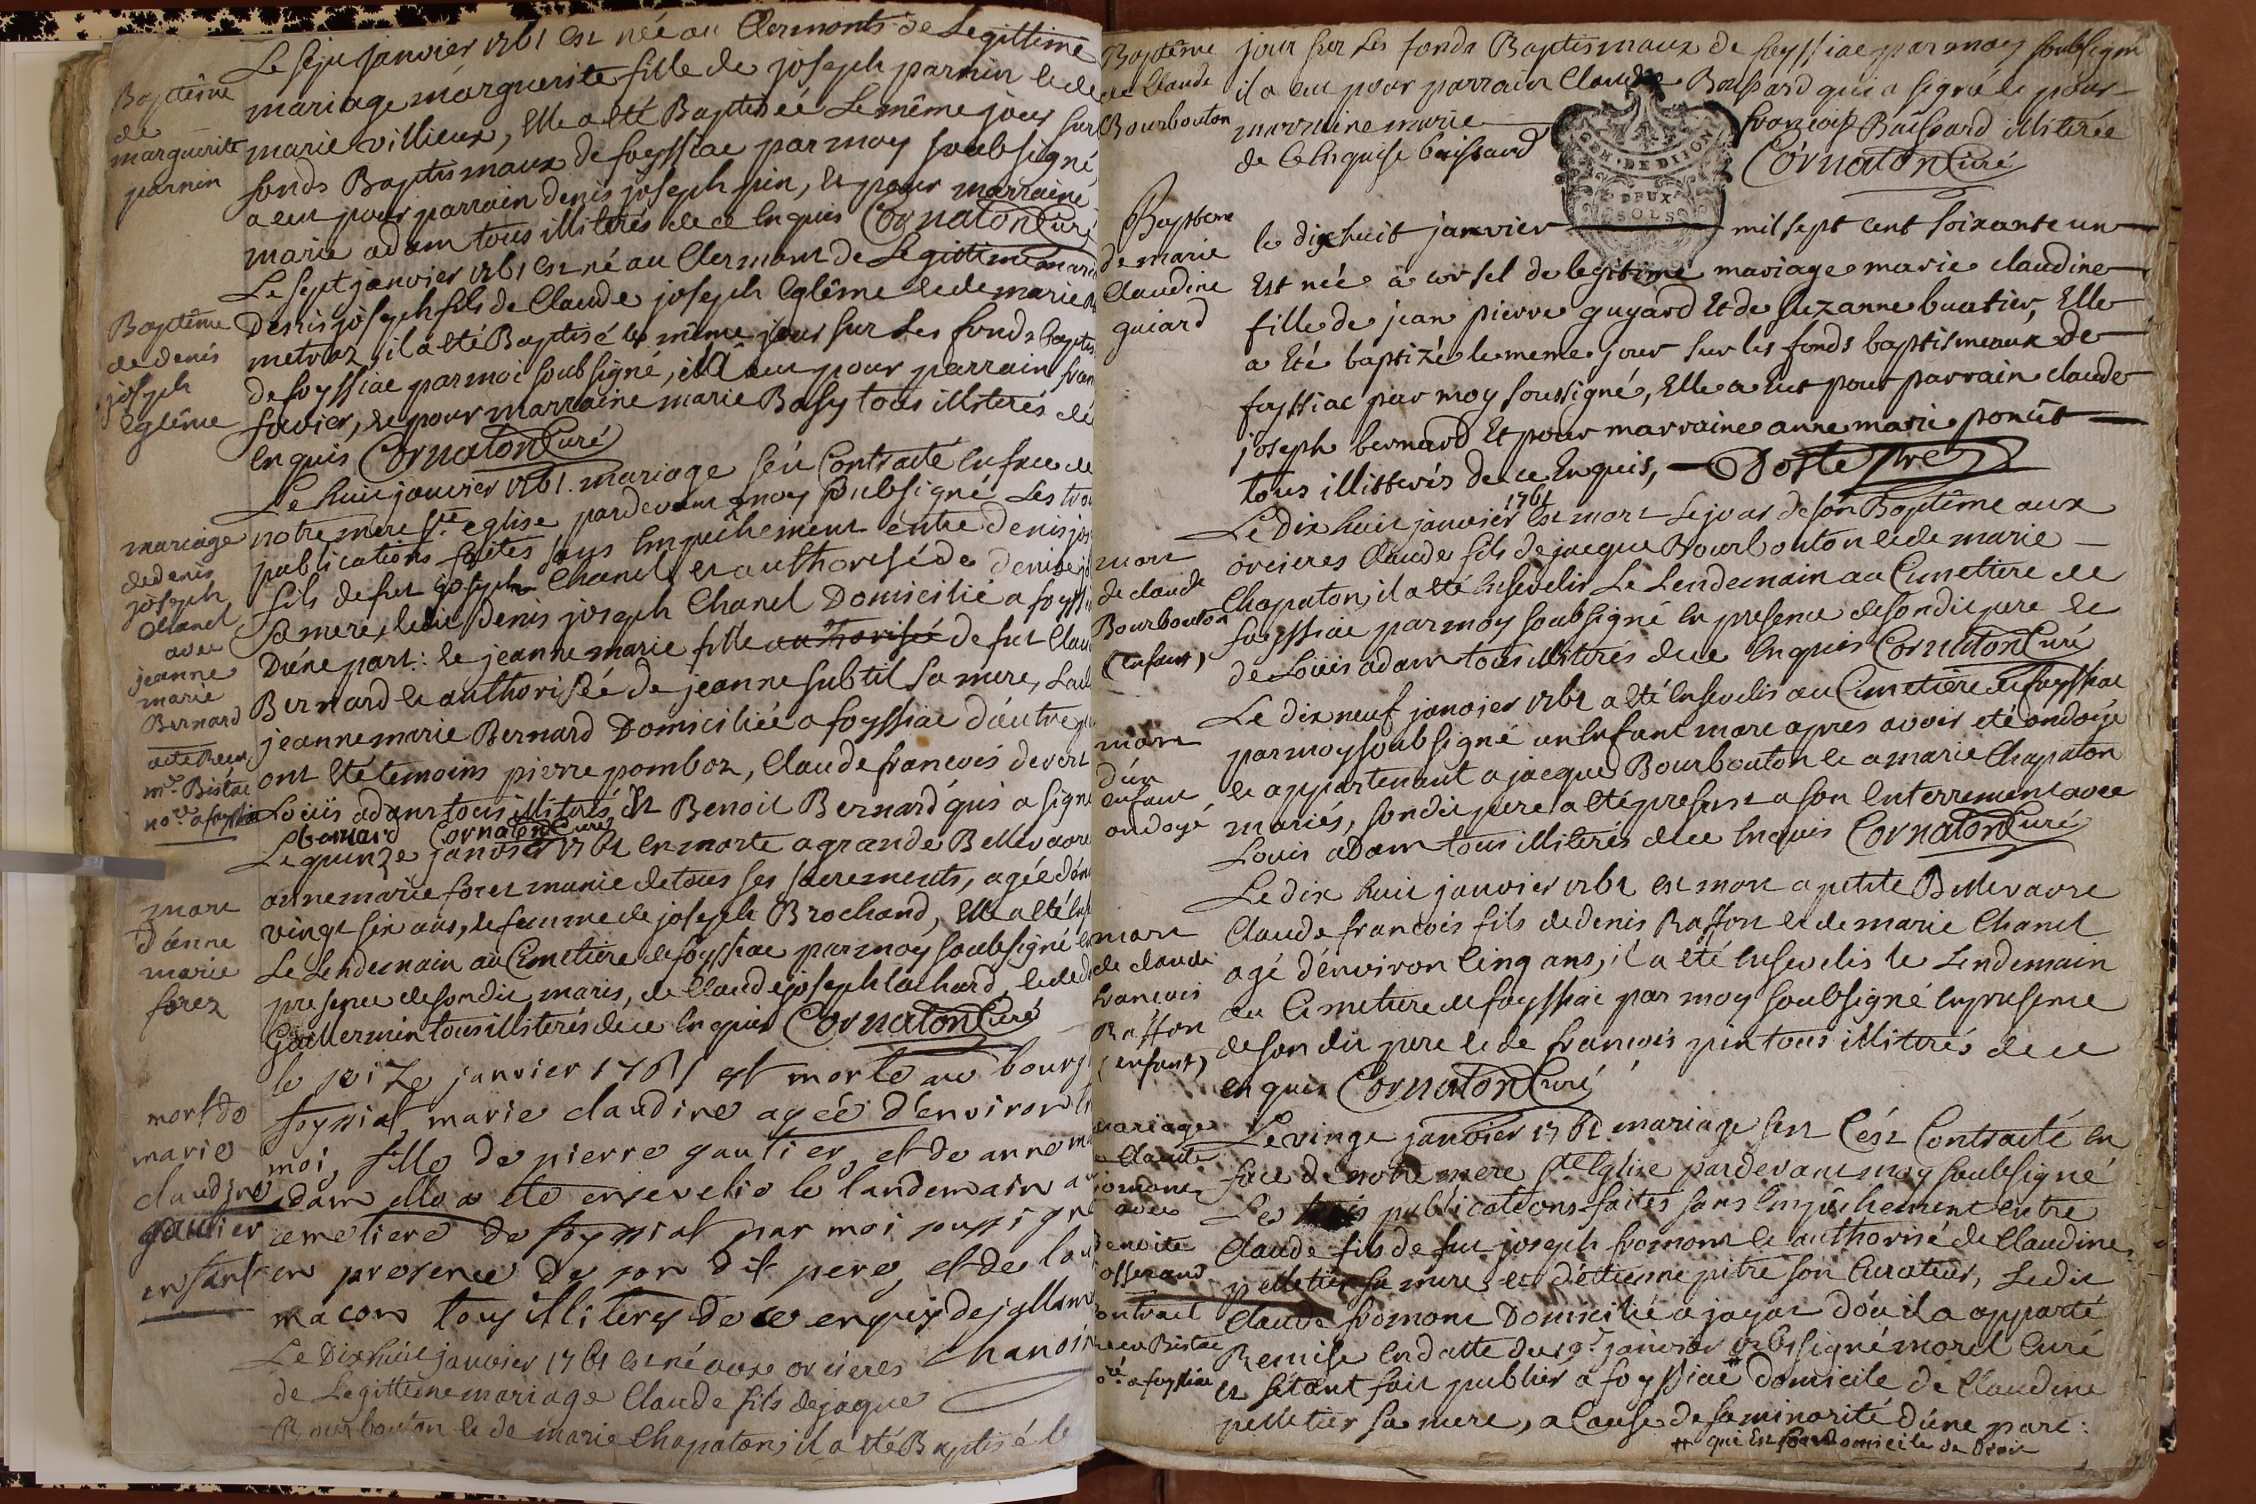 Baptême
de
marguerite
parnin
Le six janvier 1761 est née au Clermonts de Legittime
mariage marguerite fille de joseph parnin et de
marie villieux, elle a été Baptisée Le même jour sur
fonds Baptismaux de foyssiac par moy soubsigné
a eu pour parrain denis joseph pin, et pour marraine
marie adam tous illiterés de ce Enquis Cornaton Curé
Baptême
de denis
joseph
Eglême
Le sept janvier 1761 est né au Clermont de Legittime
Denis joseph fils de Claude joseph Eglême et de marie
metraz, il a été Baptisé le même jour sur Les fonds
de foyssiac par moi soubsigné, il a eu pour parrain
fouvier, et pour marraine marie Basy tous illiterés de
Enquis Cornaton Curé
mariage
de denis
joseph
Chanel
avec
jeanne
marie
Bernard
acte Reçu
m.e Bistac
no.re a foyssia
Le huit janvier 1761. mariage s'est Contracté en face de
notre mere S.te eglise pardevant moy soubsigné Les
publications faites sans Empêchement entre denis
fils de fut joseph Chanel et authorisé de denise
sa mere, ledit Denis joseph Chanel Domicilié a
D'une part: et jeanne marie fille authorisée de fut
Bernard et authorisée de jeanne subtil sa mere,
jeanne marie Bernard Domiciliée a foyssiac d'autre
ont été temoins pierre pomboz, Claude francois devert
Loüis adam tous illiterés Et Benoit Bernard qui a signé
Bernard Cornaton Curé
mort
d'anne
marie
forez
Le quinze janvier 1761 est morte a grande Bellevavre
anne marie forez munie de tous ses sacrements, agée
vingt six ans, et femme de joseph Brochand, elle a été
Le Lendemain au Cimetiere de foyssiac par moy soubsigné
presence de son dit maris, de Claude joseph Lachard,
Guillermin tous illiterés de ce Enquis Cornaton Curé
mort de
marie
claudine
gautier
enfant
le seize janvier 1761 est morte au bourg
foyssiat marie claudine agée d'environ
moi, fille de pierre gautier, et de anne
adam elle a été ensevelie le landemain
cemetiere de foyssiat par moi sussigné
en presence de son dit pere, et de
macon tous illiterez de ce enquis
Le Dix huit janvier 1761 est né aux orcieres
de Legittime mariage Claude fils de jaque
Bourbouton et de marie Chapaton, il a été Baptisé le
Baptême
de Claude
Bourbouton
jour sur Les fonds Baptismaux de foyssiac par moy soubsigné
il a eu pour parrain Claude Boissard qui a signé et pour
marraine marie françoise Boissard illiterée
de ce Enquise boissard Cornaton Curé
GEN. DE DIJON
DEUX
SOLS
Bapteme
de marie
Claudine
guiard
le dix huit janvier mil sept cent soixante un
Est née à corsel de legitime mariage marie claudine
fille de jean pierre guyard Et de suzanne buatier, Elle
a Eté baptizé le meme jour sur les fonds baptismeaux de
foyssiac par moy soussigné, Elle a Eut pour parrain claude
joseph bernard Et pour marraine anne marie poncet
tous illitterés de ce Enquis,
mort
de claude
Bourbouton
(enfant)
Le Dix huit janvier 1761 est mort Le jour de son Baptême aux
orcieres Claude fils de jacque Bourbouton et de marie
Chapaton, il a été Ensevelis Le Lendemain au Cimetiere de
foyssiac par moy soubsigné en presence de son dit pere et
de Loüis adam tous illiterés de ce Enquis Cornaton Curé
mort
d'un
enfant
ondoyé
Le dix neuf janvier 1761 a été Ensevelis au Cimetiere de foyssiac
par moy soubsigné un Enfant mort apres avoir eté ondoyé
et appartenant a jacque Bourbouton et a marie Chapaton
mariés, son dit pere a été present a son Enterrement avec
Louis adam tous illiterés de ce Enquis Cornaton Curé
mort
de claude
francois
Raffon
(enfant)
Le dix huit janvier 1761 est mort a petite Bellevavre
Claude francois fils de denis Raffon et de marie Chanel
agé d'environ Cinq ans, il a été Ensevelis le Lendemain
au Cimetiere de foyssiac par moy soubsigné En presence
de son dit pere et de francois pin tous illiterés de ce
enquis Cornaton Curé
mariage
Claude
fromont
avec
benoite
contract
Reçu Bistac
a foyssiac
Le vingt janvier 1761 mariage s'est Contracté En
face de notre mere S.te Eglise pardevant moy soubsigné
Les trois publications faites sans Empêchement entre
Claude fils de fut joseph fromont et authorisé de Claudine
pelletier sa mere et d'etienne pitre son Curateur, Ledit
Claude fromont Domicilié a jayat d'où il a apporté
Remise En datte du janvier 1761 signé morel Curé
et s'etant fait publier a foyssiac domicile de Claudine
pelletier sa mere, a Cause de sa minorité d'une part:
qui Est son domicile de Droit